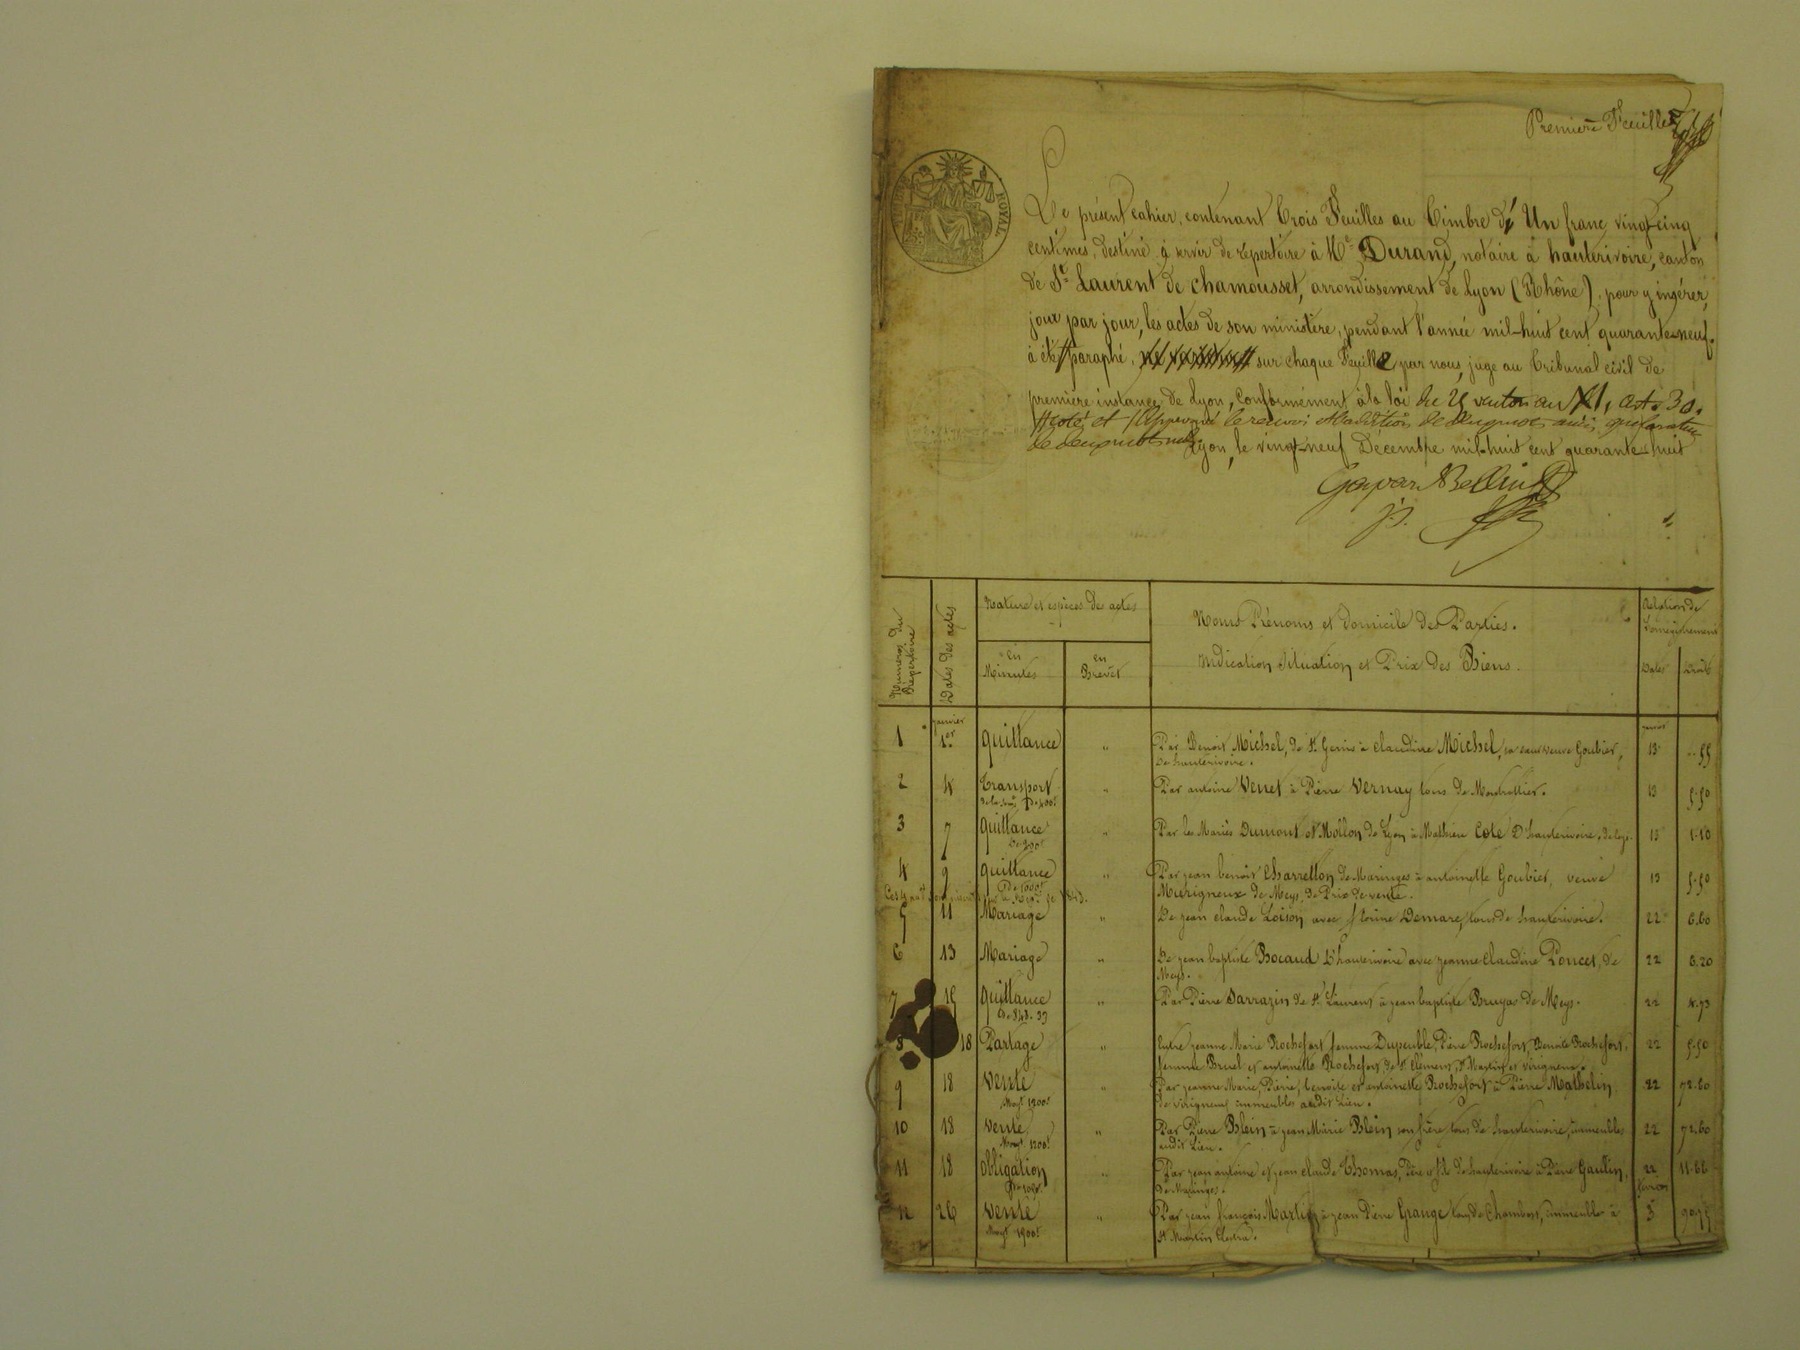 Première Feuille
ROYAL
Le présent cahier, contenant Trois Feuilles au Timbre de Un franc vingt-cinq
centimes, destiné à servir de répertoire à Me Durand, notaire à hauterivoire, canton
de St Laurent de chamousset, arrondissement de Lyon (Rhône), pour y ingérer,
jour par jour, les actes de son ministère, pendant l'année mil-huit cent quarante-neuf.
à été paraphé, sur chaque Feuille par nous, juge au Tribunal civil de
première instance de Lyon, conformément à la loi du 25 an XI, art. 30.
coté et Approuvé le renvoi
Lyon, le vingt-neuf Décembre mil-huit cent quarante-huit
Numéros du Répertoire
Dates des actes
Nature et espèces des actes
en Minutes
en Brevet
Noms Prénoms et domicile des Parties.
Indication Situation et Prix des Biens.
Relation de l'enregistrement
Dates
Droits
janvier
1 1er quittance " Par Benoit Michel, de St Genis à claudine Michel, sa sœur veuve Goubier, 13 .. 55
de hauterivoire.
2 4 Transport " Par antoine Venet à Pierre Vernay tous de 13 5.50
3 7 quittance " Par les Mariés Dumont et Mollon de Lyon à Mathieu Cote D'hauterivoire. 13 1.10
4 9 quittance " Par jean benoit Charretton de Maringes à antoinette Goubier, veuve 13 5.50
Murigneux de Meys, de Prix de vente.
5 11 Mariage " De jean claude Loison avec Demare, tous de hauterivoire. 22 6.60
6 13 Mariage " De jean baptiste Bocaud D'hauterivoire avec jeanne claudine Poncet, de 22 8.20
Meys.
7 15 quittance " Par Pierre Sarrazin de St Laurent à jean baptiste Bruyas de Meys. 22 4.73
8 18 Partage " Entre jeanne Marie Rochefort femme Dupeuble, Pierre Rochefort, Benoite Rochefort, 22 5.50
femme Bruel et antoinette Rochefort, de St Clément, St Martin et virigneux.
9 18 vente " Par jeanne Marie, Pierre, benoite et antoinette Rochefort à Pierre Mathelin 22 72.60
de virigneux immeubles audit Lieu.
Moyt 1200f
10 18 vente " Par Pierre Blein à jean Marie Blein son frère tous de hauterivoire, immeubles 22 72.60
audit Lieu.
Moyt 1200f
11 18 obligation " Par jean antoine et jean claude Thomas, Père et fils de hauterivoire à Pierre Gaulin, 22 11.66
de Maringes.
février
12 26 vente " Par jean françois Martin à jean Pierre Grange tous de Chambost, immeubles à 3
St Martin Lestra.
Moyt 1500f